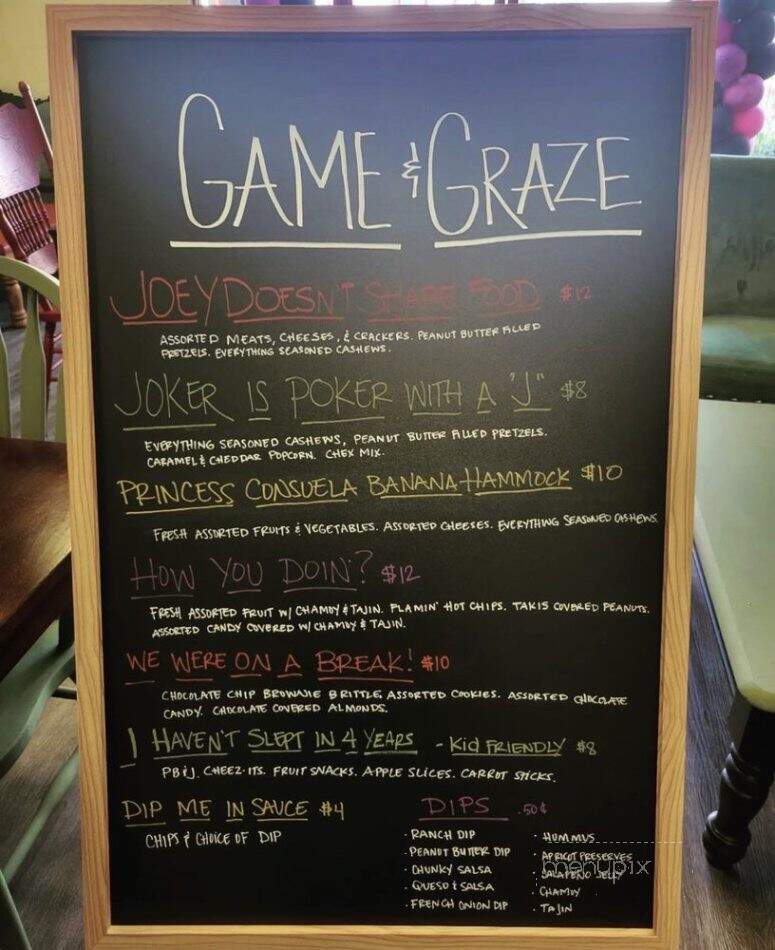 GAME & GRAZE
JOEY DOESN'T SHARE FOOD $12
ASSORTED MEATS, CHEESES, & CRACKERS. PEANUT BUTTER FILLED
PRETZELS. EVERYTHING SEASONED CASHEWS.
JOKER IS POKER WITH A "J" $8
EVERYTHING SEASONED CASHEWS, PEANUT BUTTER FILLED PRETZELS.
CARAMEL & CHEDDAR POPCORN. CHEX MIX.
PRINCESS CONSUELA BANANA-HAMMOCK $10
FRESH ASSORTED FRUITS & VEGETABLES. ASSORTED CHEESES. EVERYTHING SEASONED CASHEWS.
HOW YOU DOIN'? $12
FRESH ASSORTED FRUIT W/ CHAMOY & TAJIN. FLAMIN' HOT CHIPS. TAKIS COVERED PEANUTS.
ASSORTED CANDY COVERED W/ CHAMOY & TAJIN.
WE WERE ON A BREAK! $10
CHOCOLATE CHIP BROWNIE BRITTLE, ASSORTED COOKIES. ASSORTED CHOCOLATE
CANDY. CHOCOLATE COVERED ALMONDS.
I HAVEN'T SLEPT IN 4 YEARS - Kid FRIENDLY $8
PB & J. CHEEZ-ITS. FRUIT SNACKS. APPLE SLICES. CARROT STICKS.
DIP ME IN SAUCE $4
CHIPS & CHOICE OF DIP
DIPS .50¢
· RANCH DIP
· PEANUT BUTTER DIP
· CHUNKY SALSA
· QUESO & SALSA
· FRENCH ONION DIP
· HUMMUS
· APRICOT PRESERVES
· JALAPEÑO JELLY
· CHAMOY
· TAJIN
menupix